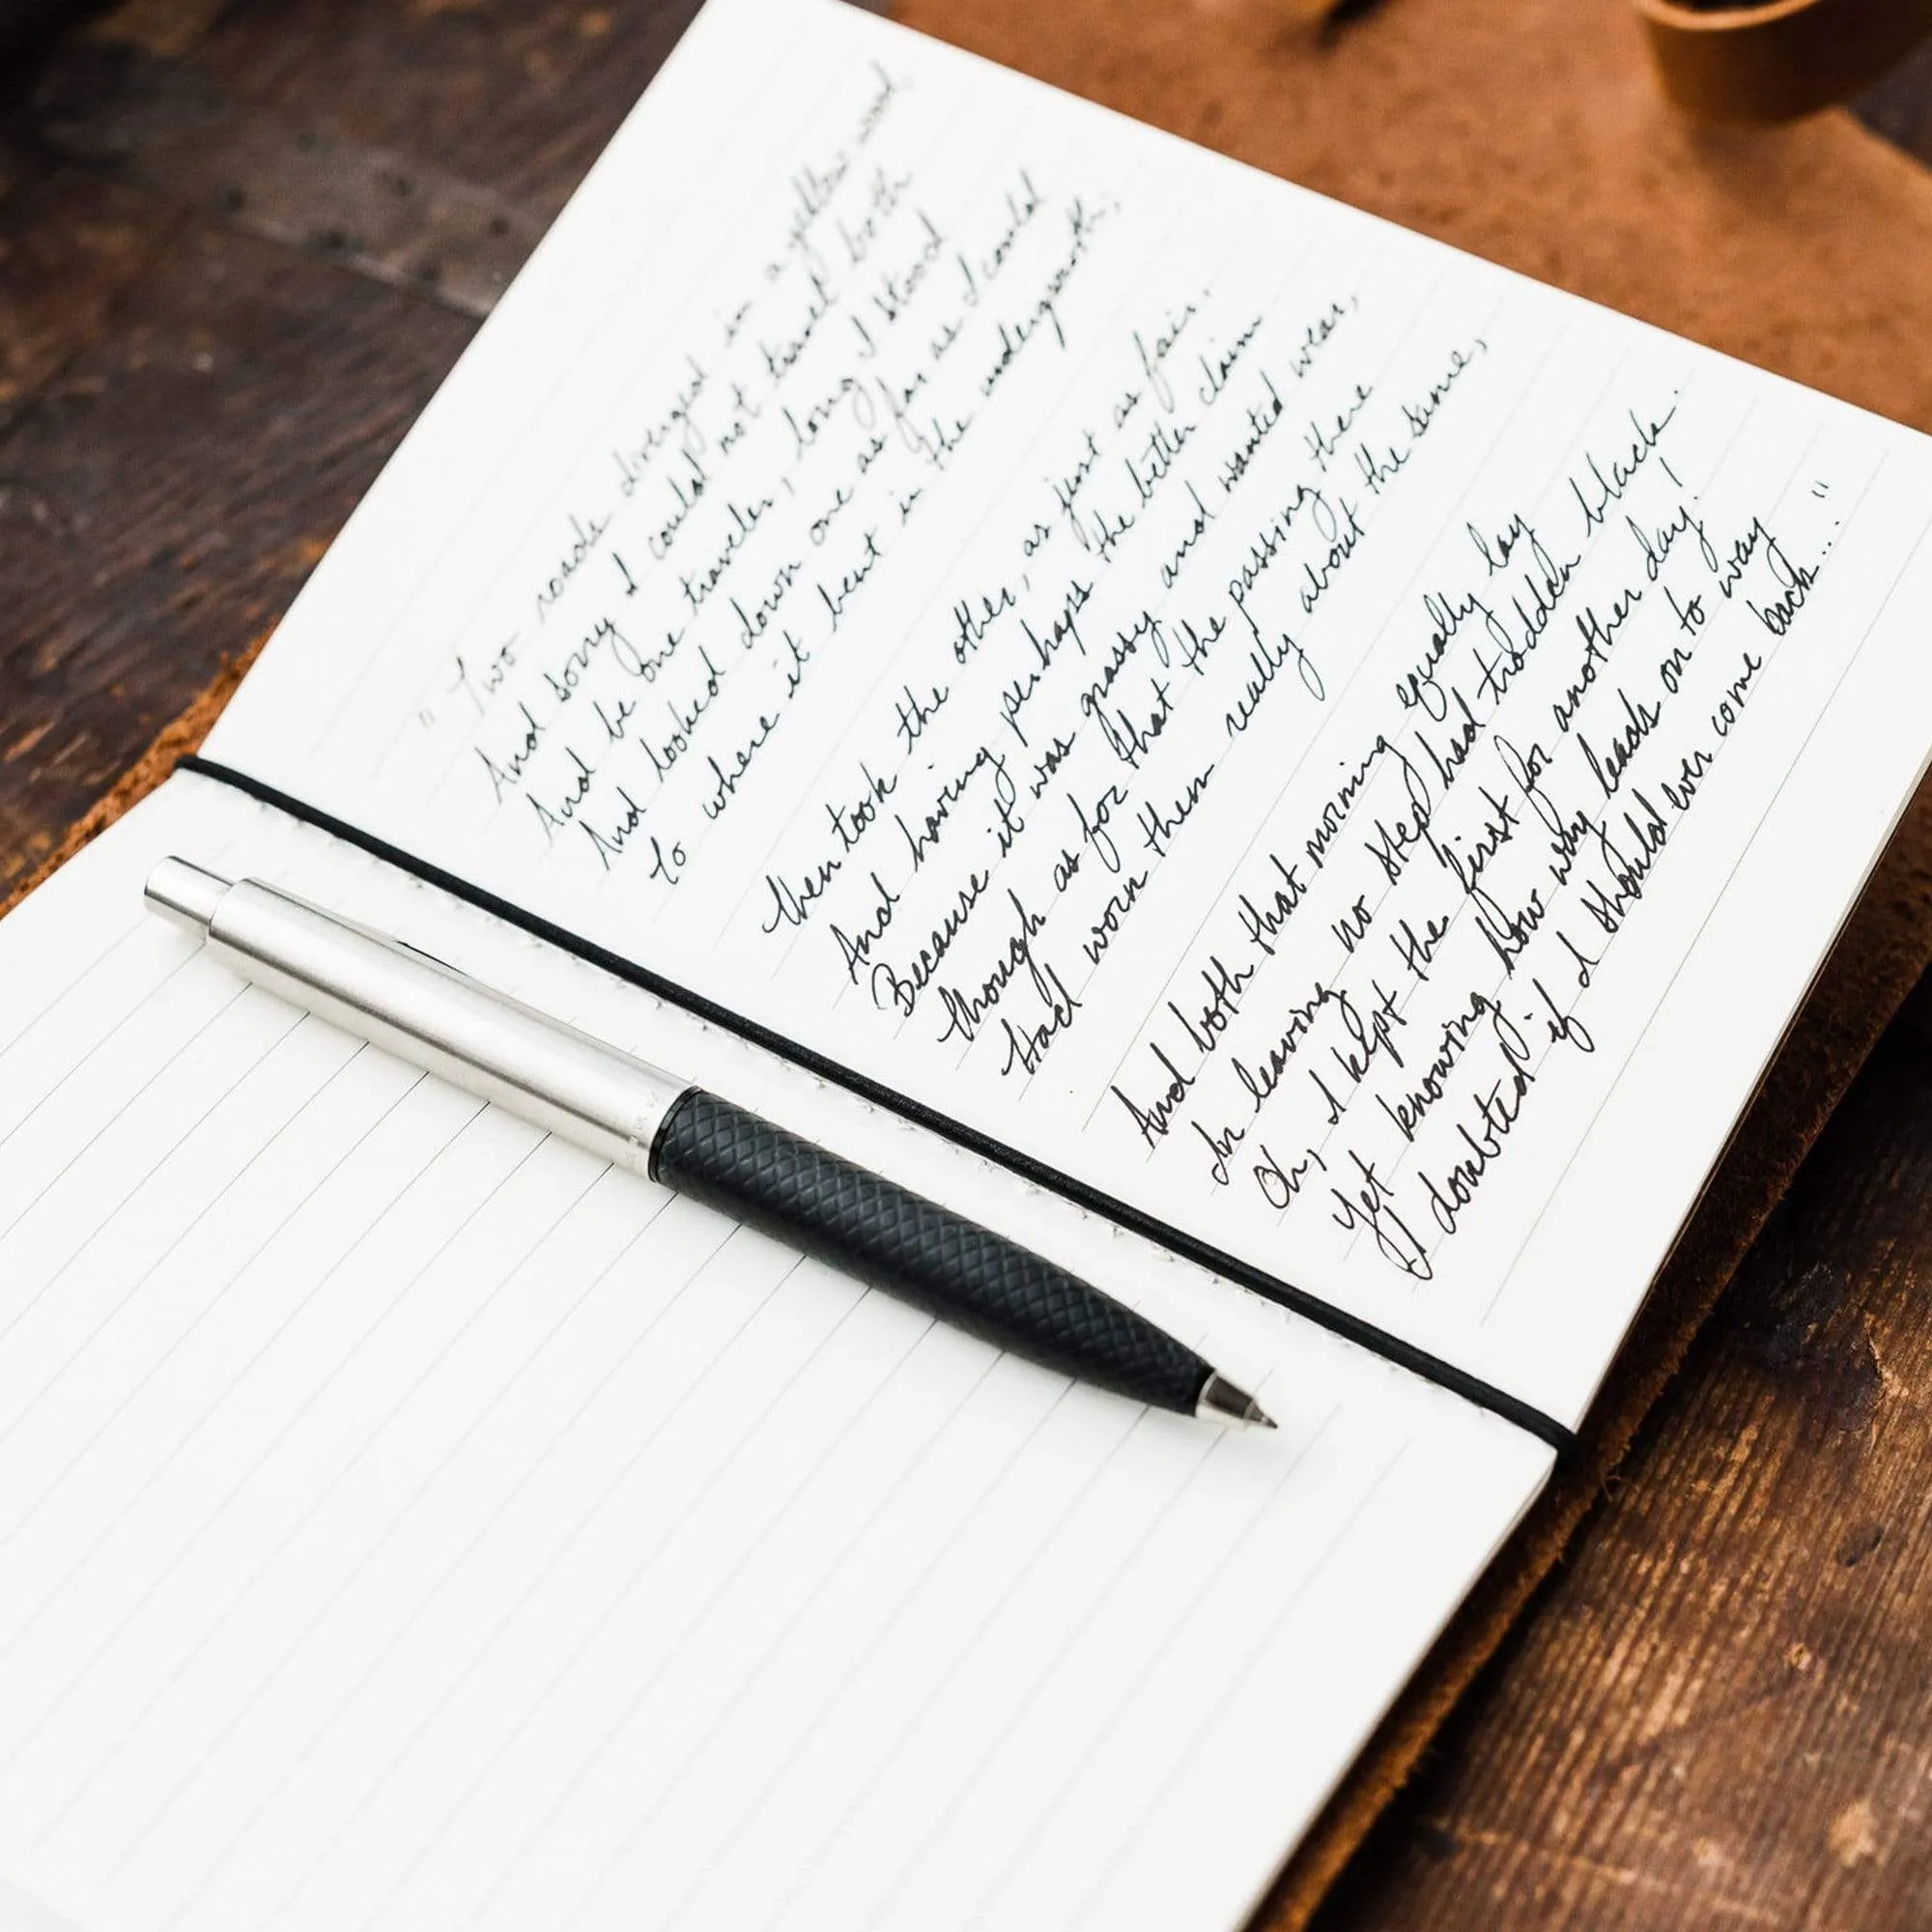 "Two roads diverged in a yellow wood,
And sorry I could not travel both
And be one traveler, long I stood
And looked down one as far as I could
To where it bent in the undergrowth;
Then took the other, as just as fair,
And having perhaps the better claim
Because it was grassy and wanted wear,
Though as for that the passing there
Had worn them really about the same,
And both that morning equally lay
In leaving no step had trodden black.
Oh, I kept the first for another day!
Yet knowing how way leads on to way
I doubted if I should ever come back..."